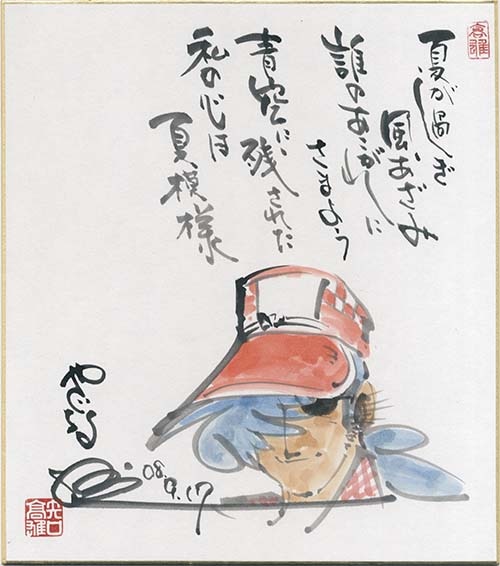 夏が過ぎ
風あざみ
誰のあこがれに
さまよう
青空に残された
私の心は
夏模様
08.9.17
矢口
高雄